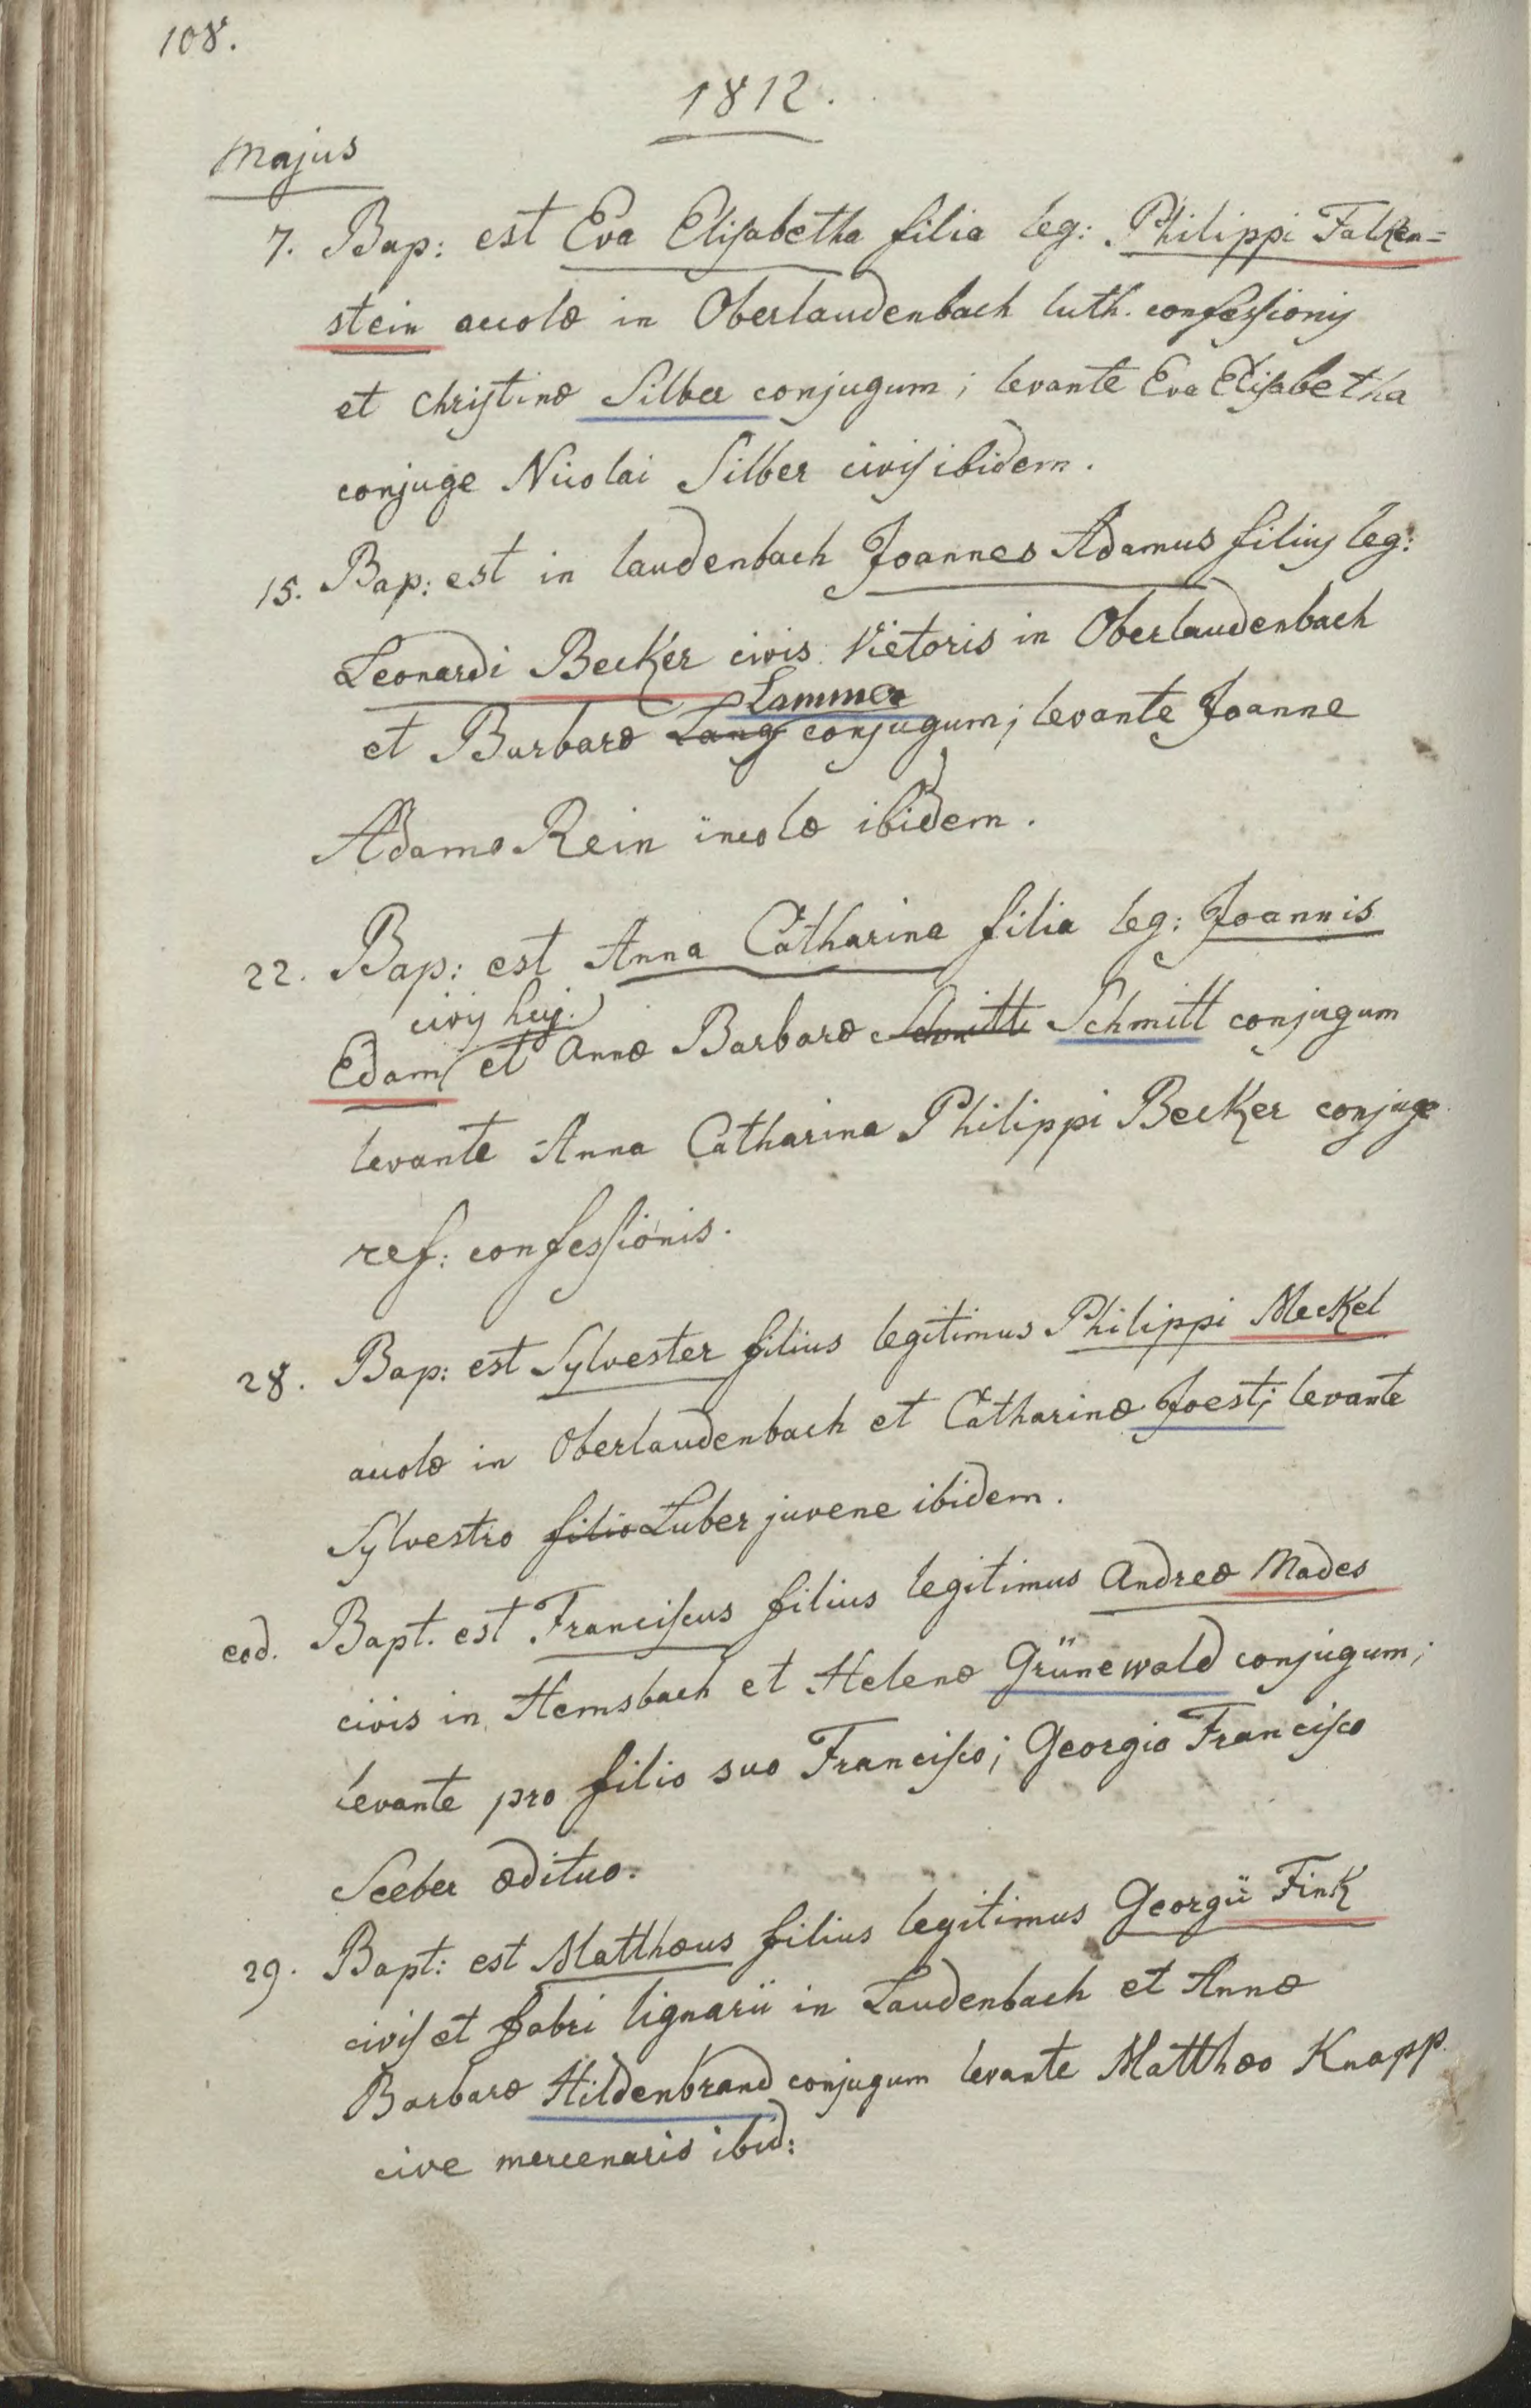 108.
1812.
Majus
7. Bap: est Eva Elisabetha filia leg: Philippi Falken=
stein accolæ in Oberlaudenbach luth. confessionis
et Christinæ Silber conjugum; levante Eva Elisabetha
conjuge Nicolai Silber civis ibidem.
15. Bap: est in laudenbach Joannes Adamus filius leg:
Leonardi Becker civis Vietoris in Oberlaudenbach
Lammer
et Barbaræ Lang conjugum; levante Joanne
Adamo Rein incolæ ibidem.
22. Bap: est Anna Catharina filia leg: Joannis
civis huj.
Edam et Annæ Barbaræ Schmitt Schmitt conjugum
levante Anna Catharina Philippi Becker conjuge
ref: confessionis.
28. Bap: est Sylvester filius legitimus Philippi Meckel
accolæ in Oberlaudenbach et Catharinæ Joest; levante
Sylvestro filio Luber juvene ibidem.
eod. Bapt. est Franciscus filius legitimus Andreæ Mades
civis in Hemsbach et Helenæ Grünewald conjugum;
levante pro filio suo Francisco; Georgio Francisco
Seeber ædituo.
29. Bapt: est Matthæus filius legitimus Georgii Fink
civis et fabri lignarii in Laudenbach et Annæ
Barbaræ Hildenbrand conjugum levante Matthæo Knapp
cive mercenario ibid: